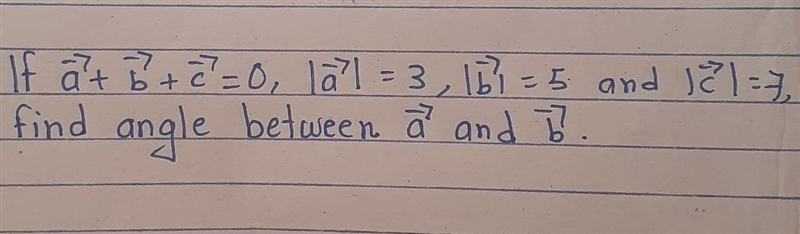 If a⃗ + b⃗ + c⃗ = 0, |a⃗| = 3, |b⃗| = 5 and |c⃗| = 7,
find angle between a⃗ and b⃗.